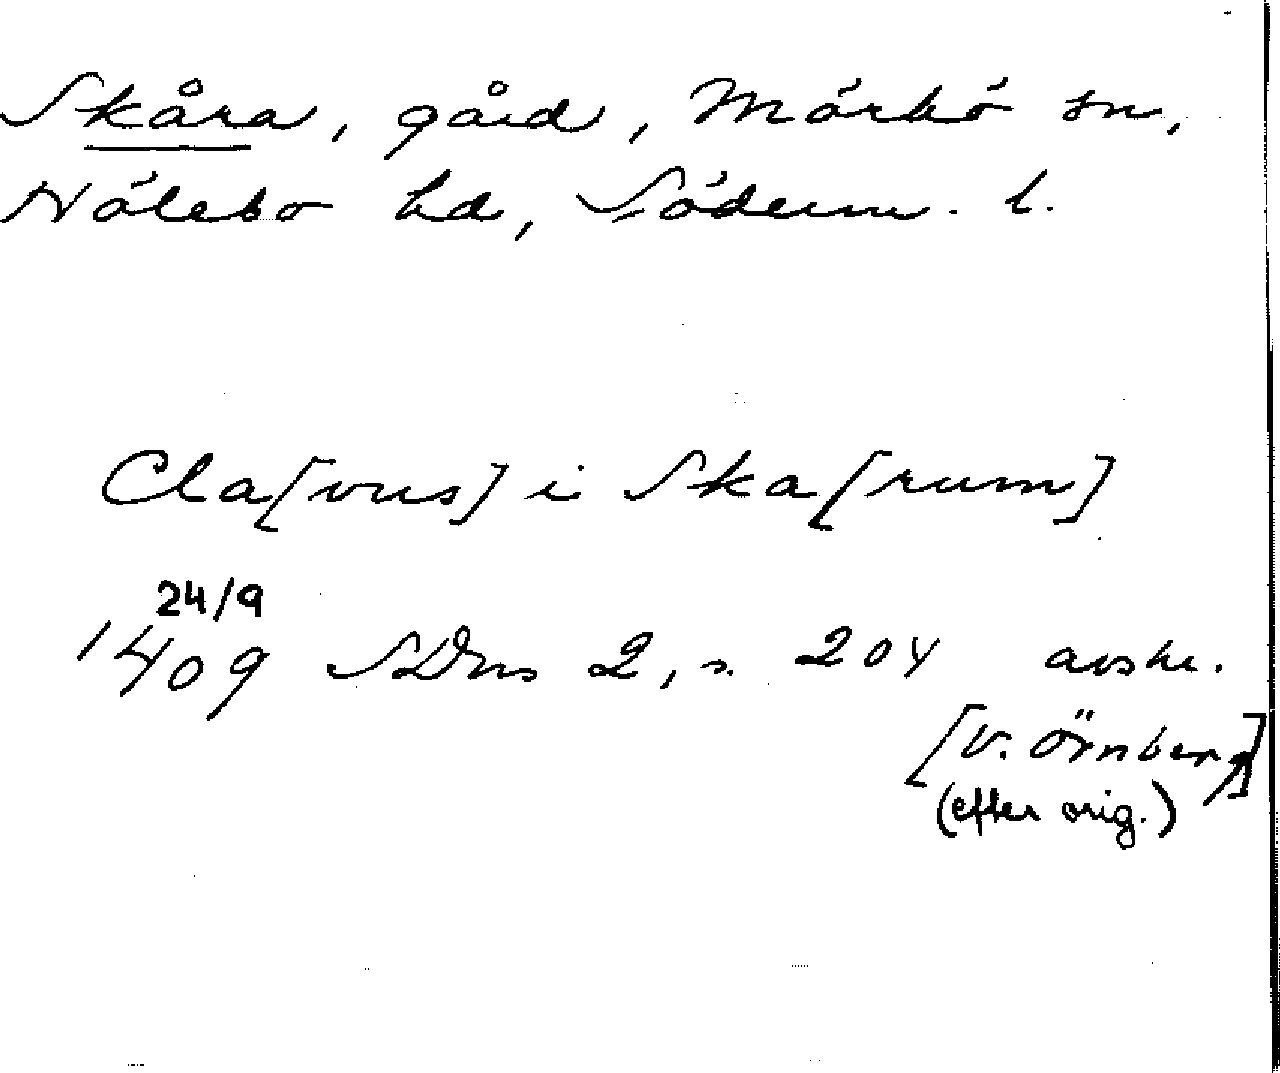 Skåra, gård, Mörkö sn,
Hölebo hd, Söderm. l.
Cla[vus] i Ska[rum]
24/9
1409 SDns 2, s. 204 avskr.
[v. Örnberg]
(efter orig.)